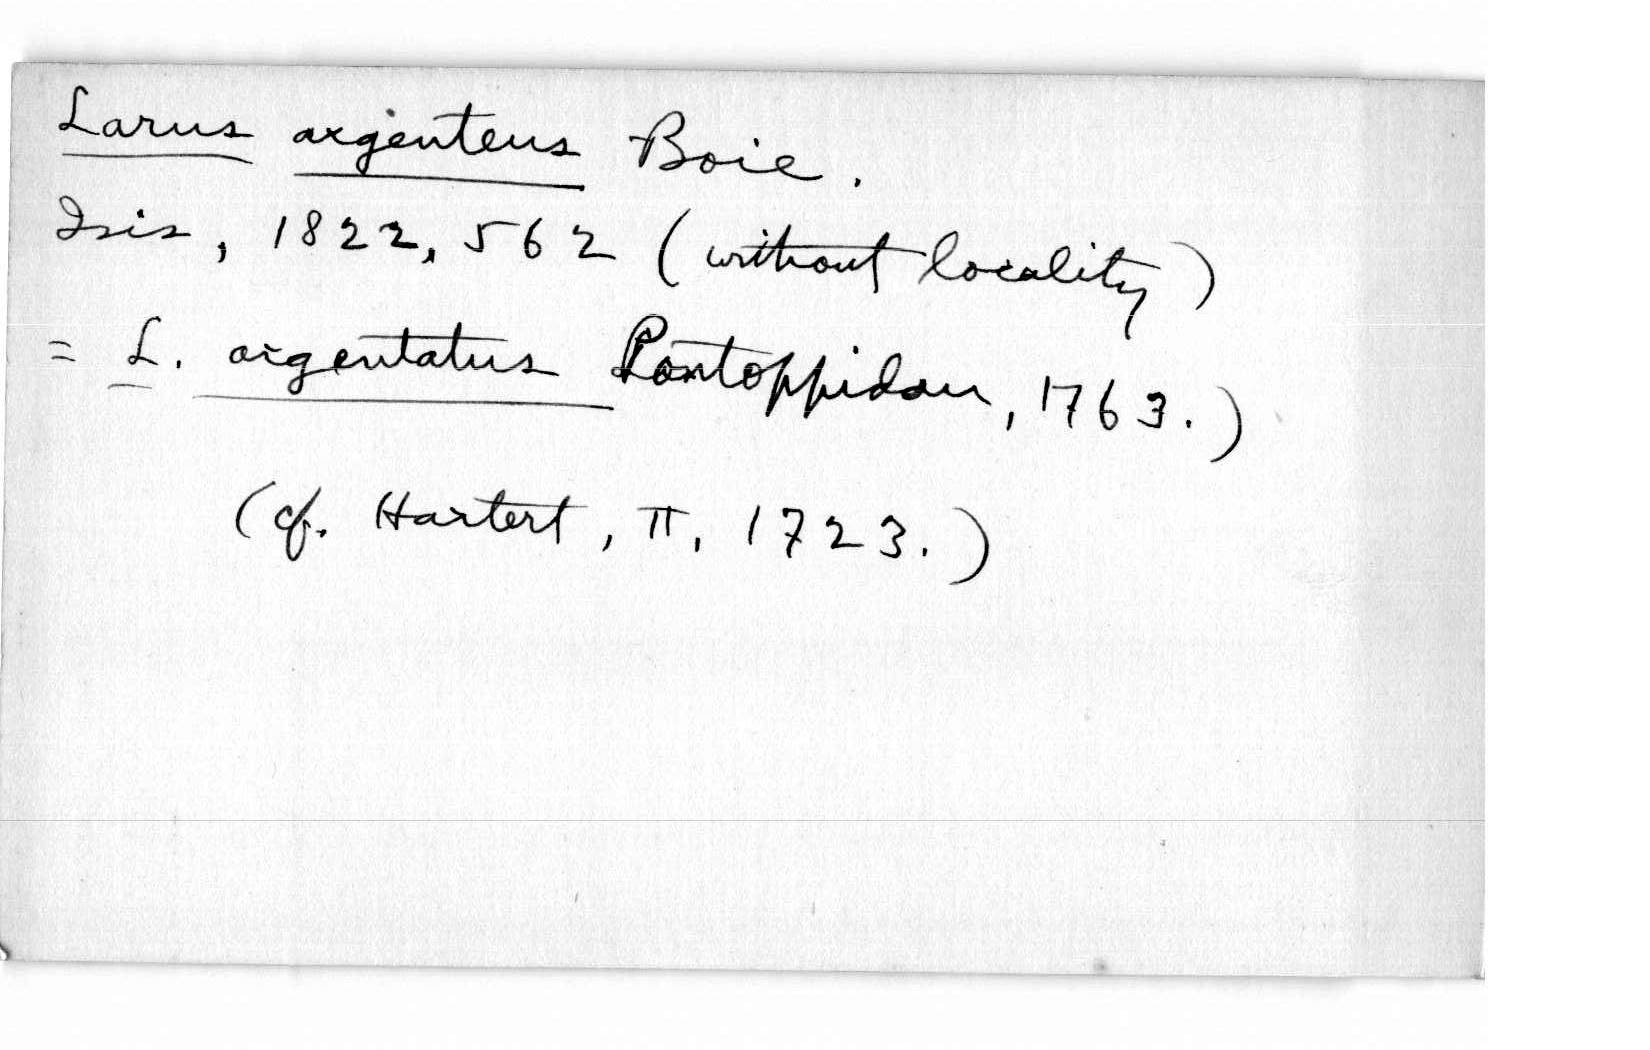 Larus argenteus Boie.
Isis, 1822, 562 (without locality)
= L. argentatus Pontoppidan, 1763.)
(cf. Hartert, II, 1723.)